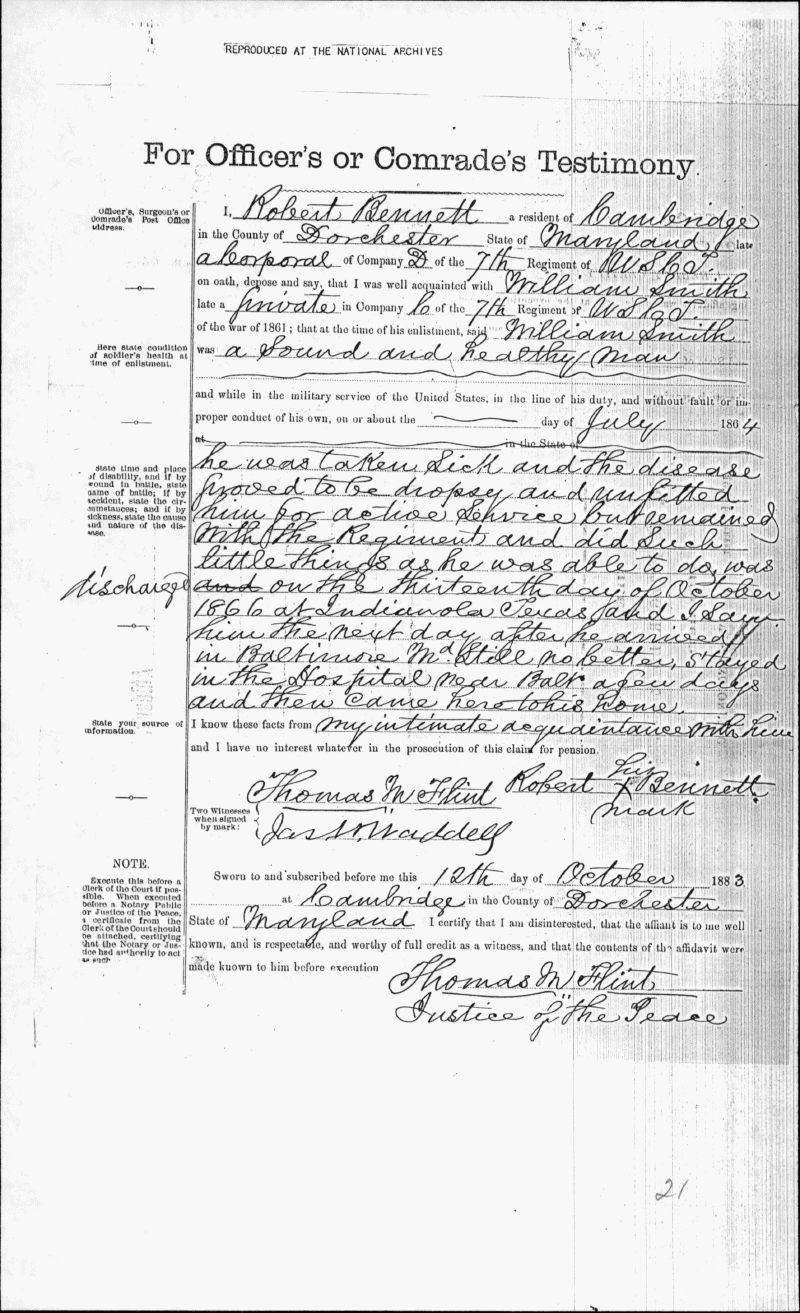 REPRODUCED AT THE NATIONAL ARCHIVES
For Officer's or Comrade's Testimony.
Officer's, Surgeon's or
Comrade's Post Office
address.
I, Robert Bennett a resident of Cambridge
in the County of Dorchester State of Maryland, late
a Corporal of Company D of the 7th Regiment of U S C T.
on oath, depose and say, that I was well acquainted with William Smith
late a private in Company C of the 7th Regiment of U S C T.
of the war of 1861; that at the time of his enlistment, said William Smith
Here state condition
of soldier's health at
time of enlistment.
was a Sound and healthy man
and while in the military service of the United States, in the line of his duty, and without fault or im-
proper conduct of his own, on or about the day of July 1864
at in the State of
State time and place
of disability, and if by
wound in battle, state
name of battle; if by
accident, state the cir-
cumstances; and if by
sickness, state the cause
and nature of the dis-
ease.
he was taken Sick and the disease
proved to be dropsy and unfitted
him for active Service but remained
with the Regiment and did Such
little things as he was able to do, was
discharged and on the thirteenth day of October
1866 at Indianola Texas and I Saw
him the next day after he arrived
in Baltimore Md Still no better, Stayed
in the Hospital near Balt a few days
and then came here to his home.
State your source of
information.
I know these facts from my intimate acquaintance with him
and I have no interest whatever in the prosecution of this claim for pension.
Robert his X mark Bennett.
Two Witnesses
when signed
by mark:
Thomas M Flint
Jas W. Waddell
NOTE.
Execute this before a
Clerk of the Court if pos-
sible. When executed
before a Notary Public
or Justice of the Peace,
a certificate from the
Clerk of the Court should
be attached, certifying
that the Notary or Jus-
tice had authority to act
as such
Sworn to and subscribed before me this 12th day of October 1883
at Cambridge in the County of Dorchester
State of Maryland I certify that I am disinterested, that the affiant is to me well
known, and is respectable, and worthy of full credit as a witness, and that the contents of the affidavit were
made known to him before execution
Thomas M Flint
Justice of the Peace
21